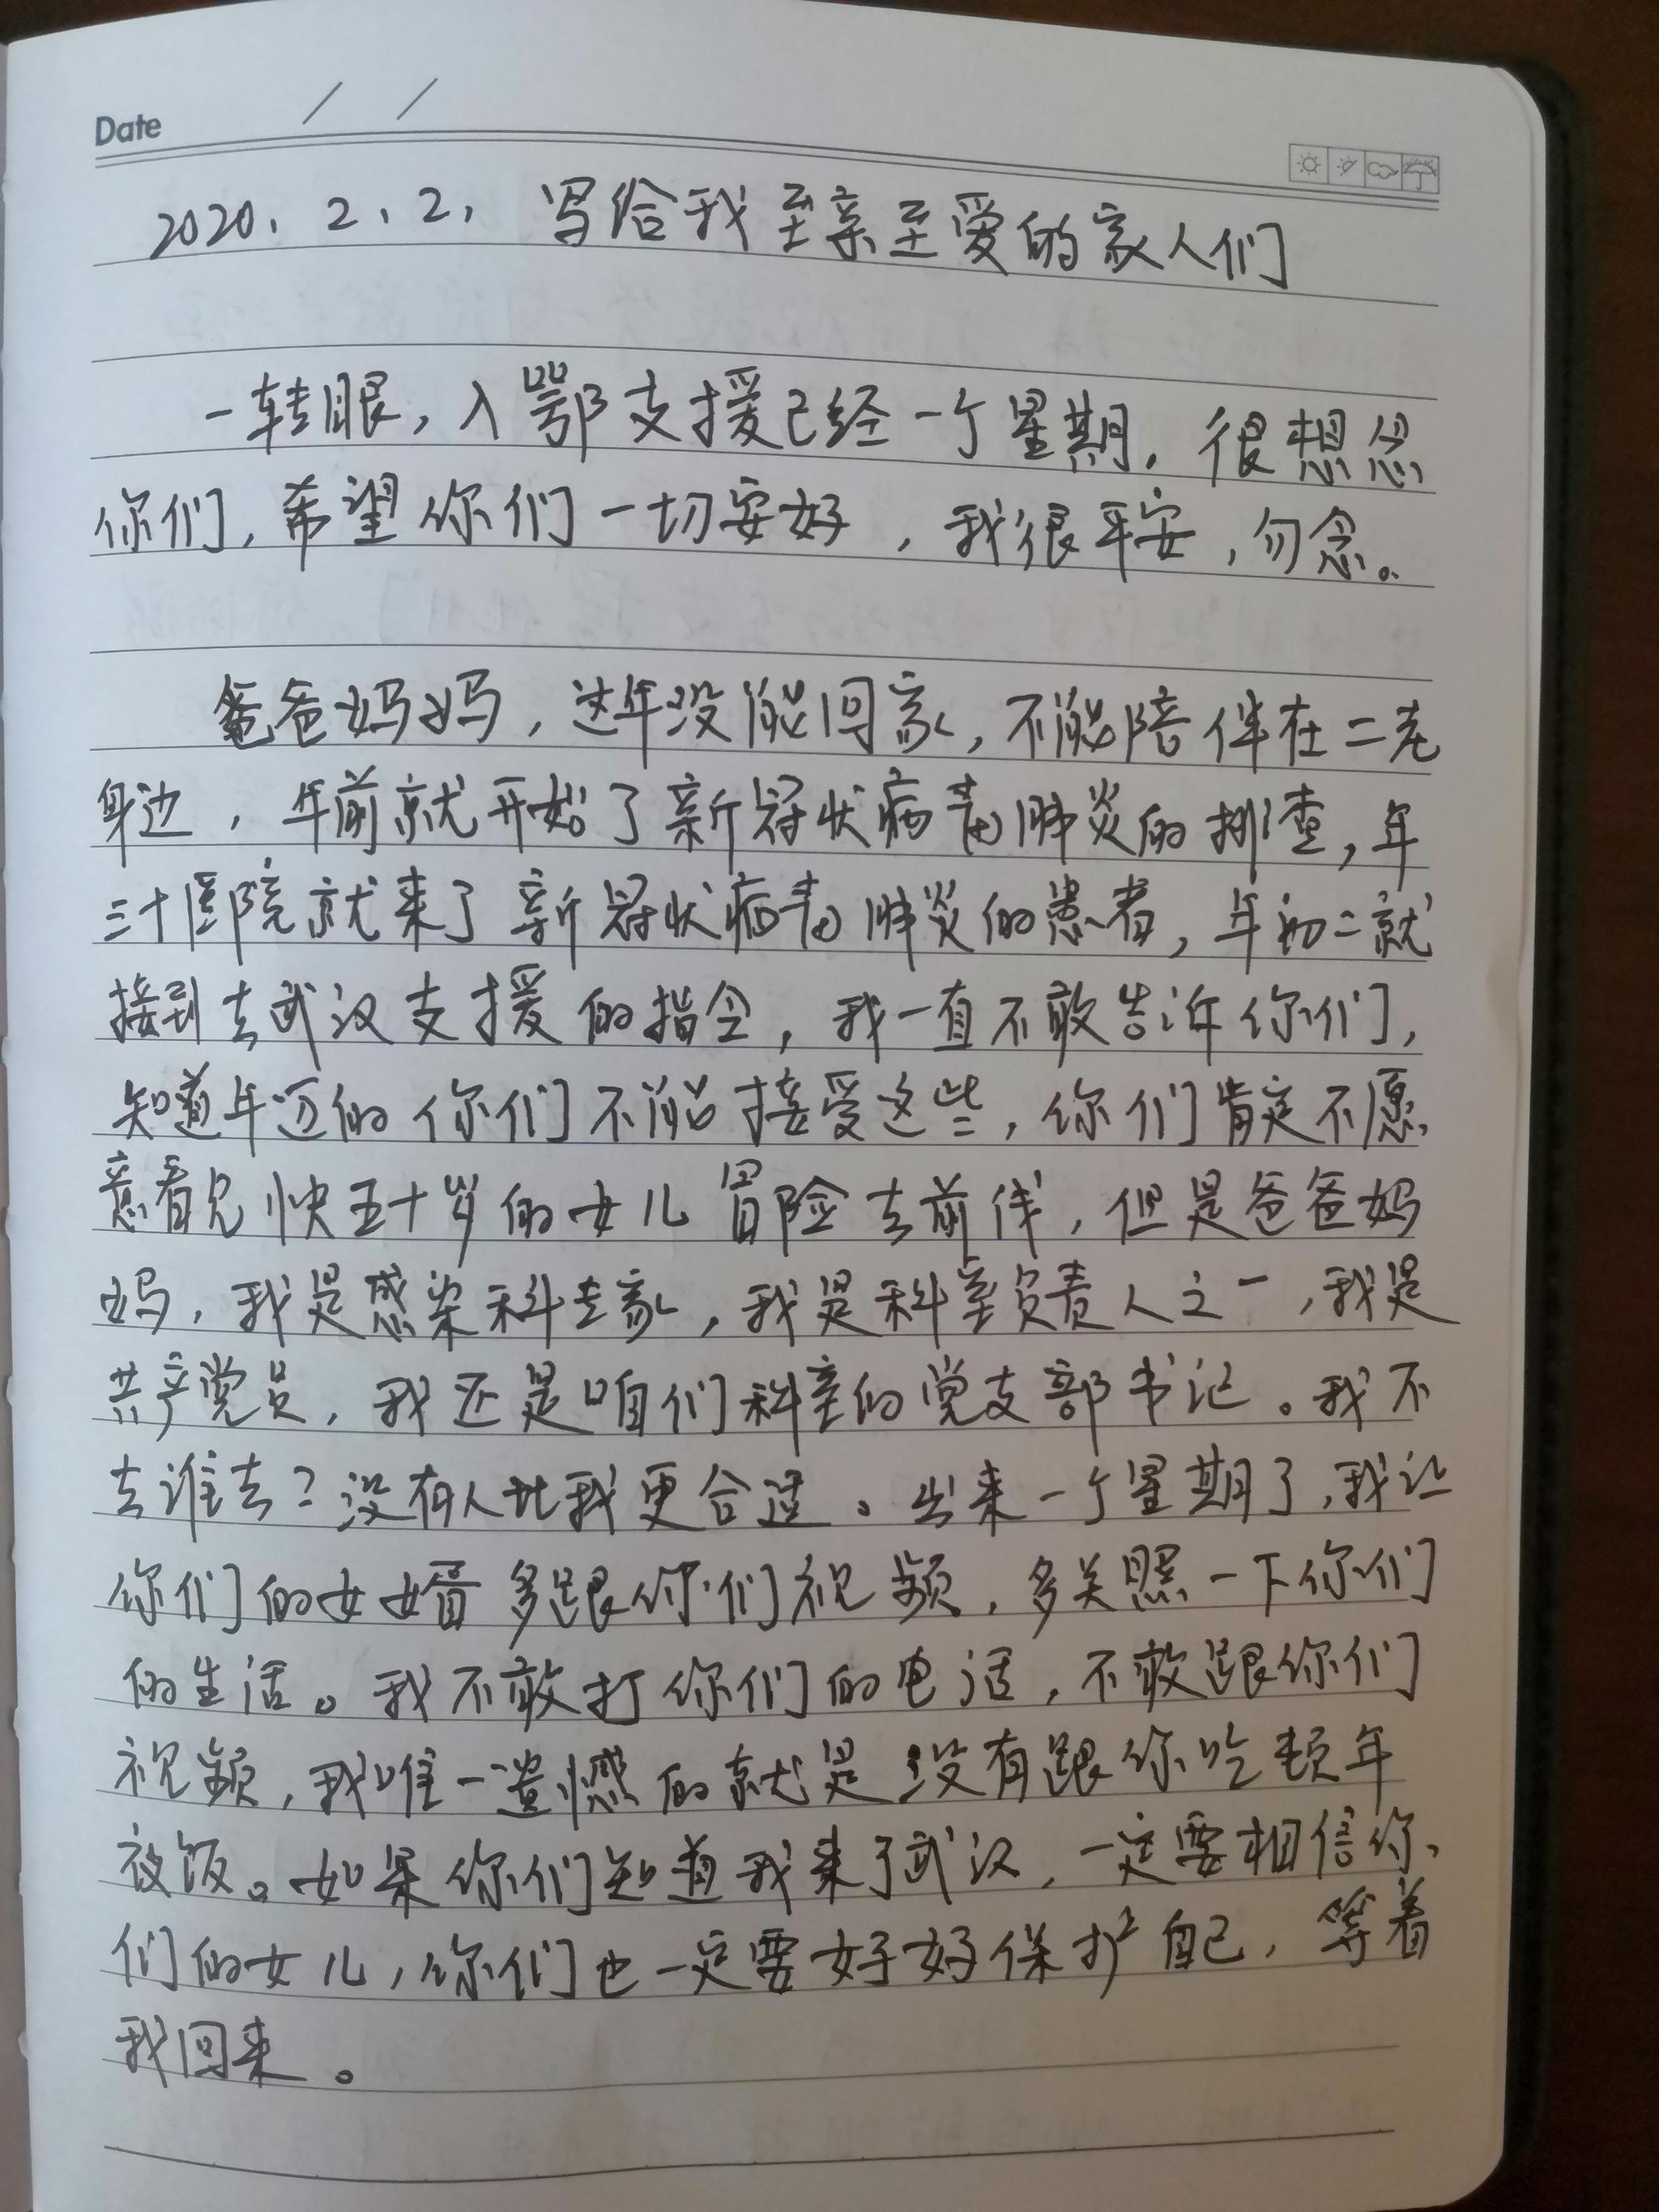 Date / /
2020、2、2、 写给我至亲至爱的家人们
一转眼,入鄂支援已经一个星期,很想念
你们,希望你们一切安好,我很平安,勿念。
爸爸妈妈,过年没能回家,不能陪伴在二老
身边,年前就开始了新冠状病毒肺炎的排查,年
三十医院就来了新冠状病毒肺炎的患者,年初二就
接到去武汉支援的指令,我一直不敢告诉你们,
知道年迈的你们不能接受这些,你们肯定不愿
意看见快五十岁的女儿冒险去前线,但是爸爸妈
妈,我是感染科专家,我是科室负责人之一,我是
共产党员,我还是咱们科室的党支部书记。我不
去谁去?没有人比我更合适。出来一个星期了,我让
你们的女婿多跟你们视频,多关照一下你们
的生活。我不敢打你们的电话,不敢跟你们
视频,我唯一遗憾的就是没有跟你吃顿年
夜饭。如果你们知道我来了武汉,一定要相信你
们的女儿,你们也一定要好好保护自己,等着
我回来。